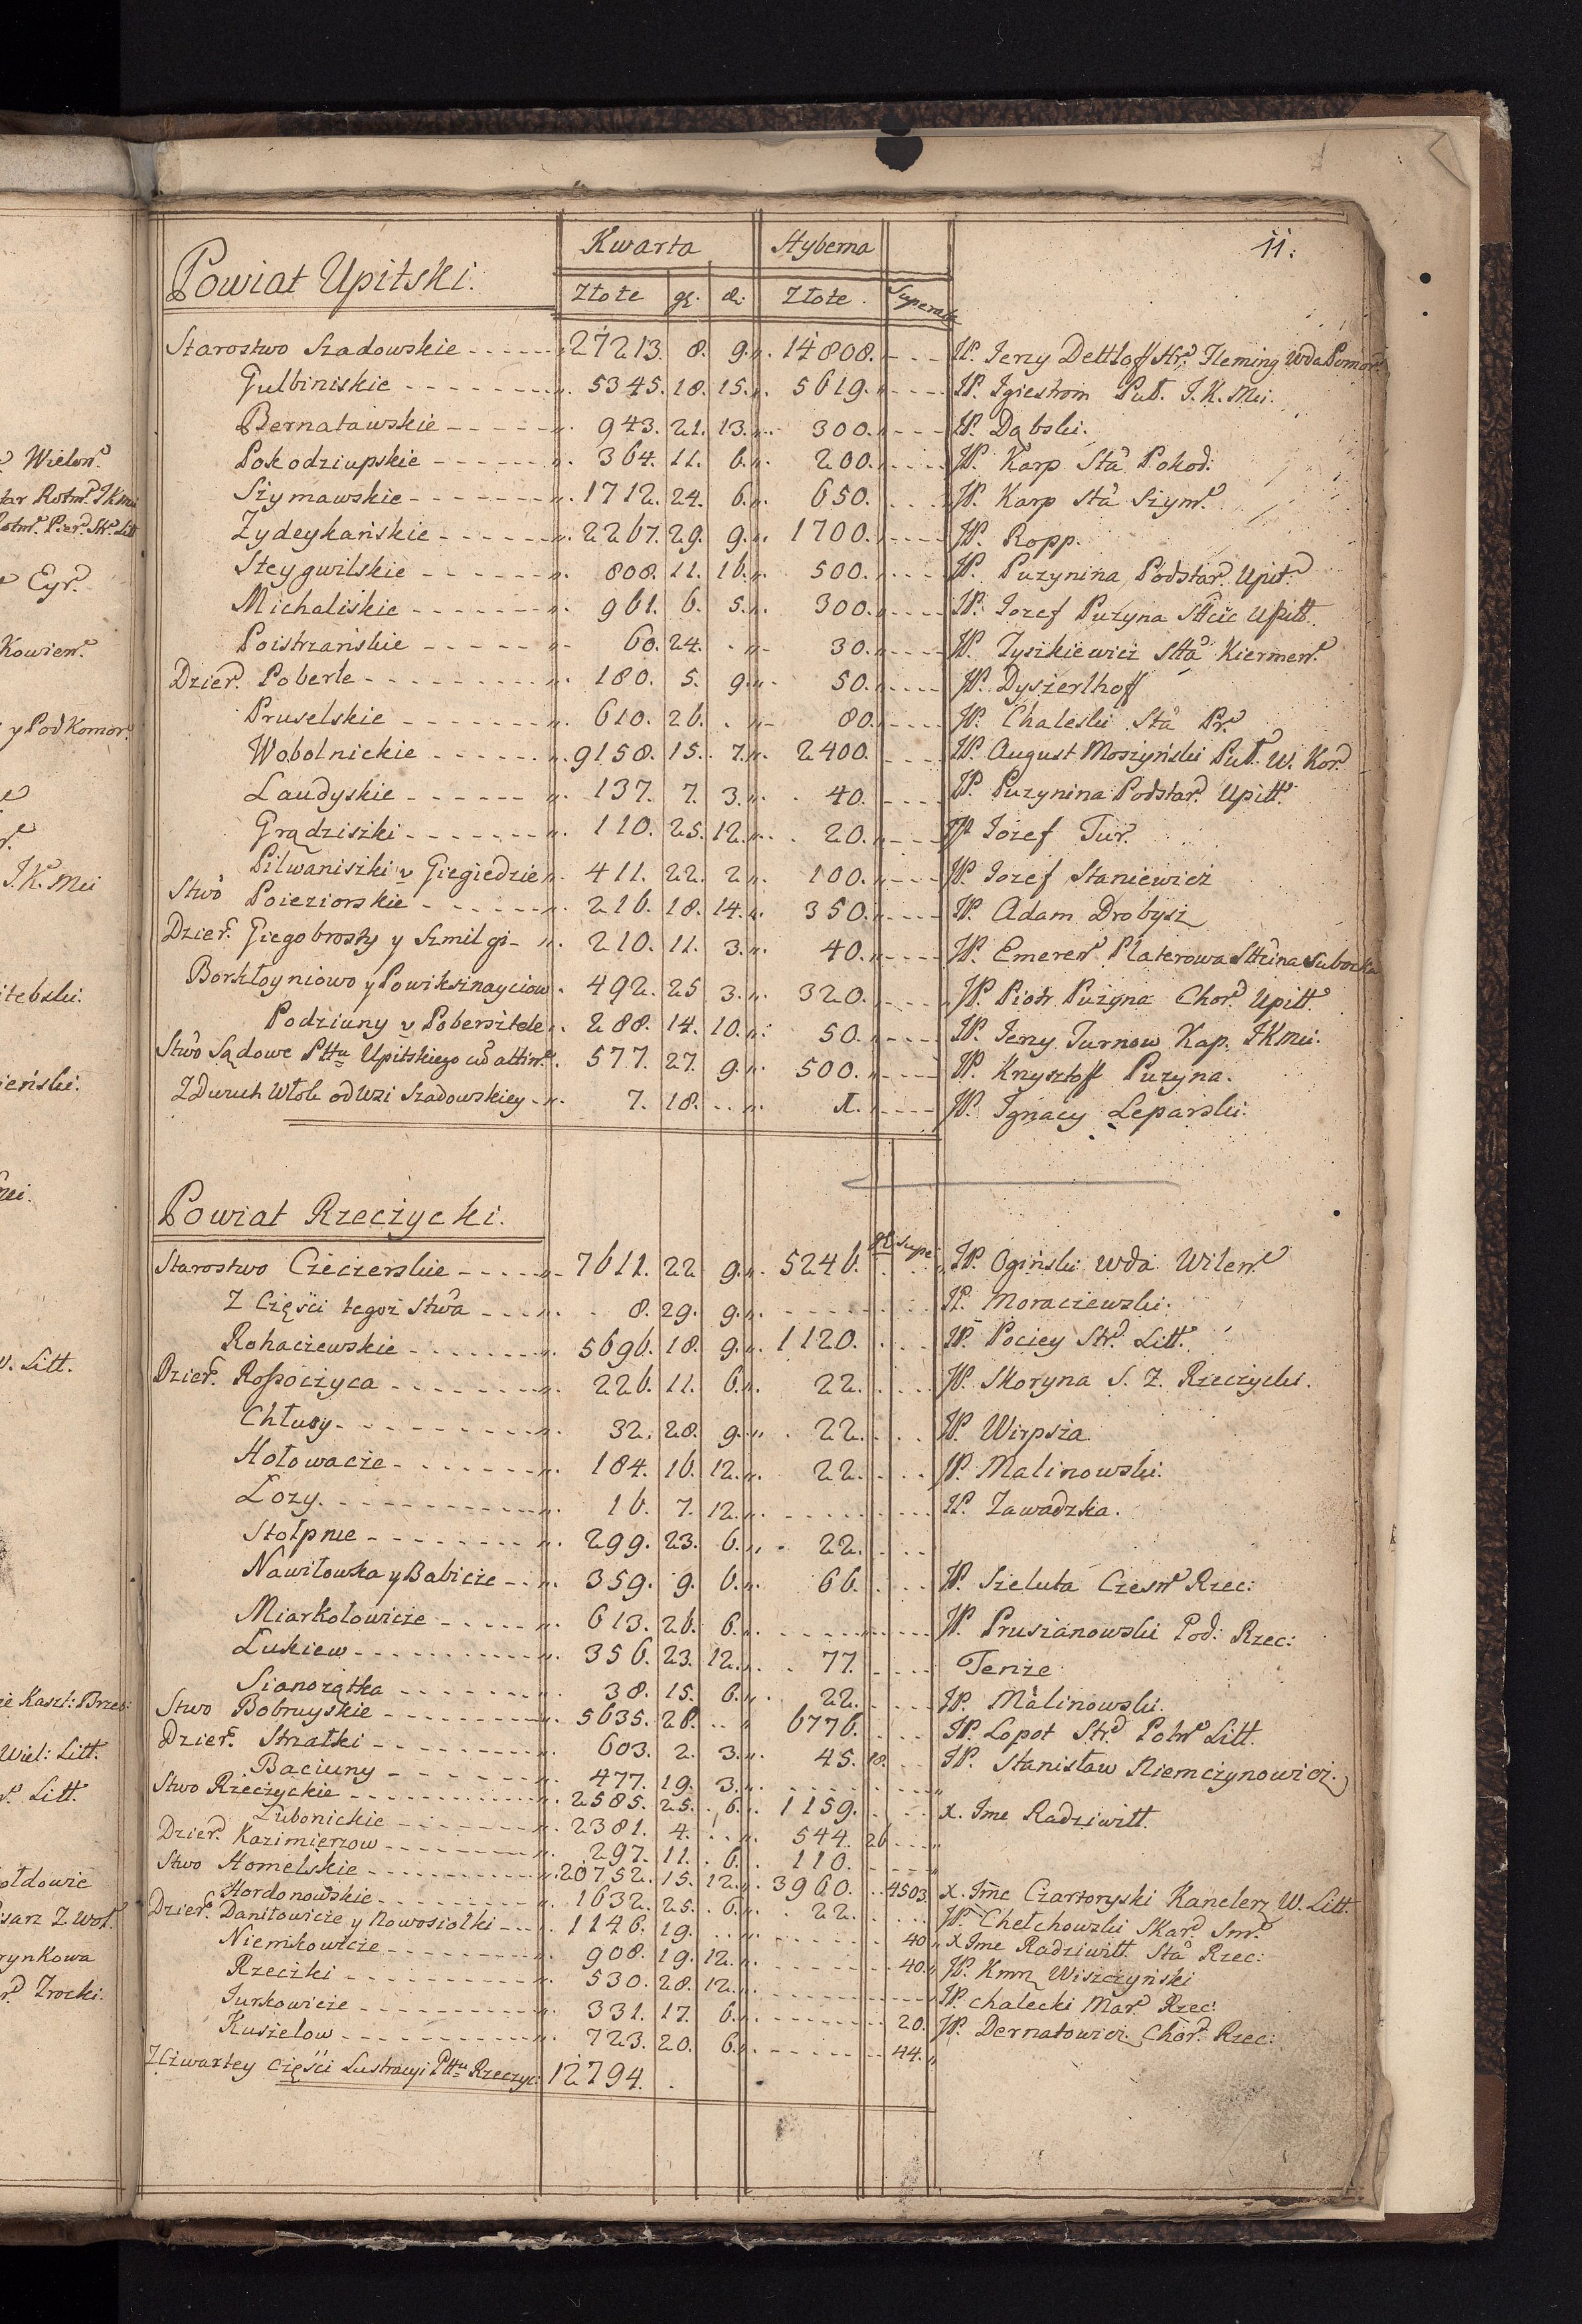 11.
Kwarta Hyberna
Powiat Upitski.
Złote gr. d. Złote Superata
Starostwo Szadowskie 27213. 8. 9. 14808. JP. Jerzy Dettloff Fleming Wda Pomor.
Gulbiniskie 5345. 18. 15. 5619. JP. Igiestrom Puł. J.K.Mci.
Bernatawskie 943. 21. 13. 300. JP. Dąbski.
Pokodziupskie 364. 11. 6. 200. JP. Karp Sta Pokod:
Szymawskie 1712. 24. 6. 650. JP. Karp Sta Szym.
Zydeykańskie 2267. 29. 9. 1700. JP. Ropp.
Steygwilskie 808. 11. 16. 500. JP. Puzynina Podstar. Upit.
Michaliskie 961. 6. 5. 300. JP. Jozef Puzyna Sttcic Upitt.
Poistrzańskie 60. 24. 30. JP. Tyszkiewicz Stta Kiermen.
Dzier. Poberle 180. 5. 9. 50. JP. Dyszerlhoff
Pruselskie 610. 26. 80. JP. Chaleski Sta Pr.
Wobolnickie 9158. 15. 7. 2400. JP. August Moszyński Puł. W. Kor.
Laudyskie 137. 7. 3. 40. JP. Puzynina Podstar. Upitt.
Grądziszki 110. 25. 12. 20. JP. Jozef Tur.
Pilwaniszki v Giegiedzie 411. 22. 2. 100. JP. Jozef Staniewicz
Stwo Poieziorskie 216. 18. 14. 350. JP. Adam Drobysz
Dzier. Giegobrosty y Szmilgi 210. 11. 3. 40. JP. Emeren. Platerowa Sttcina Subocka
Borkłoyniowo y Powiksznayciow 492. 25 3. 320. JP. Piotr Puzyna Chor. Upitt.
Podziuny v Pobersztele 288. 14. 10. 50. JP. Jerzy Turnow Kap. JKMci.
Stwo Sądowe Pttu Upitskiego 577. 27. 9. 500. JP. Krzysztoff Puzyna.
Z Dwuch Włok od Wsi Szadowskiey 7. 18. 1. JP. Ignacy Leparski.
Powiat Rzeczycki.
gr. Supe.
Starostwo Czeczerskie 7611. 22 9. 5246. JP. Ogiński Wda Wilen.
Z Części tegoż Stwa 8. 29. 9. JP. Moraczewski.
Rohaczewskie 5696. 18. 9. 1120. JP. Pociey Str. Litt.
Dzier. Rossoczyca 226. 11. 6. 22. JP. Skoryna S. Z. Rzeczycki.
Chłusy 32. 28. 9. 22. JP. Wirpsza
Hołowacze 184. 16. 12. 22. JP. Malinowski.
Lozy. 16. 7. 12. JP. Zawadzka.
Stołpnie 299. 23. 6. 22.
Nawiłowka y Babicze 359. 9. 6. 66. JP. Szeluta Czesn. Rzec:
Miarkołowicze 613. 26. 6. JP. Pruszanowski Pod: Rzec:
Lukiew 356. 23. 12. 77. Tenże
Sianożątka 38. 15. 6. 22. JP. Malinowski.
Stwo Bobruyskie 5635. 28. 6776. JP. Lopot Str. Poln. Litt.
Dzier. Strzałki 603. 2. 3. 45. 18. JP. Stanisław Niemczynowicz.
Baciuny 477. 19. 3.
Stwo Rzeczyckie 2585. 25. 6. 1159. X. Jme Radziwiłł.
Lubonickie 2381. 4. 544. 26
Dzier. Kazimierzow 297. 11. 6. 110.
Stwo Homelskie 20752. 15. 12. 3960. 4503. X. Jme Czartoryski Kanclerz W. Litt.
Hordonowskie 1632. 25. 6. 22. JP. Chełchowski Skar. Sm.
Dzier. Daniłowicze y Nowosiołki 1146. 19. 40 X Jme Radziwiłł Sta Rzec:
Niemkowicze 908. 19. 12. 40. JP. Kmrz Wiszczyński
Rzeczki 530. 28. 12. JP. Chalecki Mar. Rzec:
Jurkowicze 331. 17. 6. 20. JP. Dernatowicz Chor. Rzec:
Kuszelow 723. 20. 6. 44.
Z Czwartey Części Lustracyi Pttu Rzeczyc: 12794.
Wielon.
Eyr.
Kowien.
y Podkomor.
J.K.Mci
itebski.
ieński.
W. Litt.
ie Kaszt: Brzes:
Wiel: Litt.
Litt.
ołdowic
isarz Z. Woł.
rynkowa
Trocki.